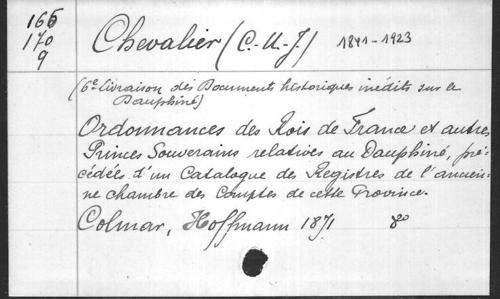 166
170
9
Chevalier (C.-U.-J.) 1841-1923
(6e livraison des Documents historiques inédits sur le
Dauphiné)
Ordonnances des Rois de France et autres
Princes Souverains relatives au Dauphiné, pré-
cédées d'un Catalogue des Registres de l'ancien-
ne chambre des Comptes de cette Province.
Colmar, Hoffmann 1871 8o